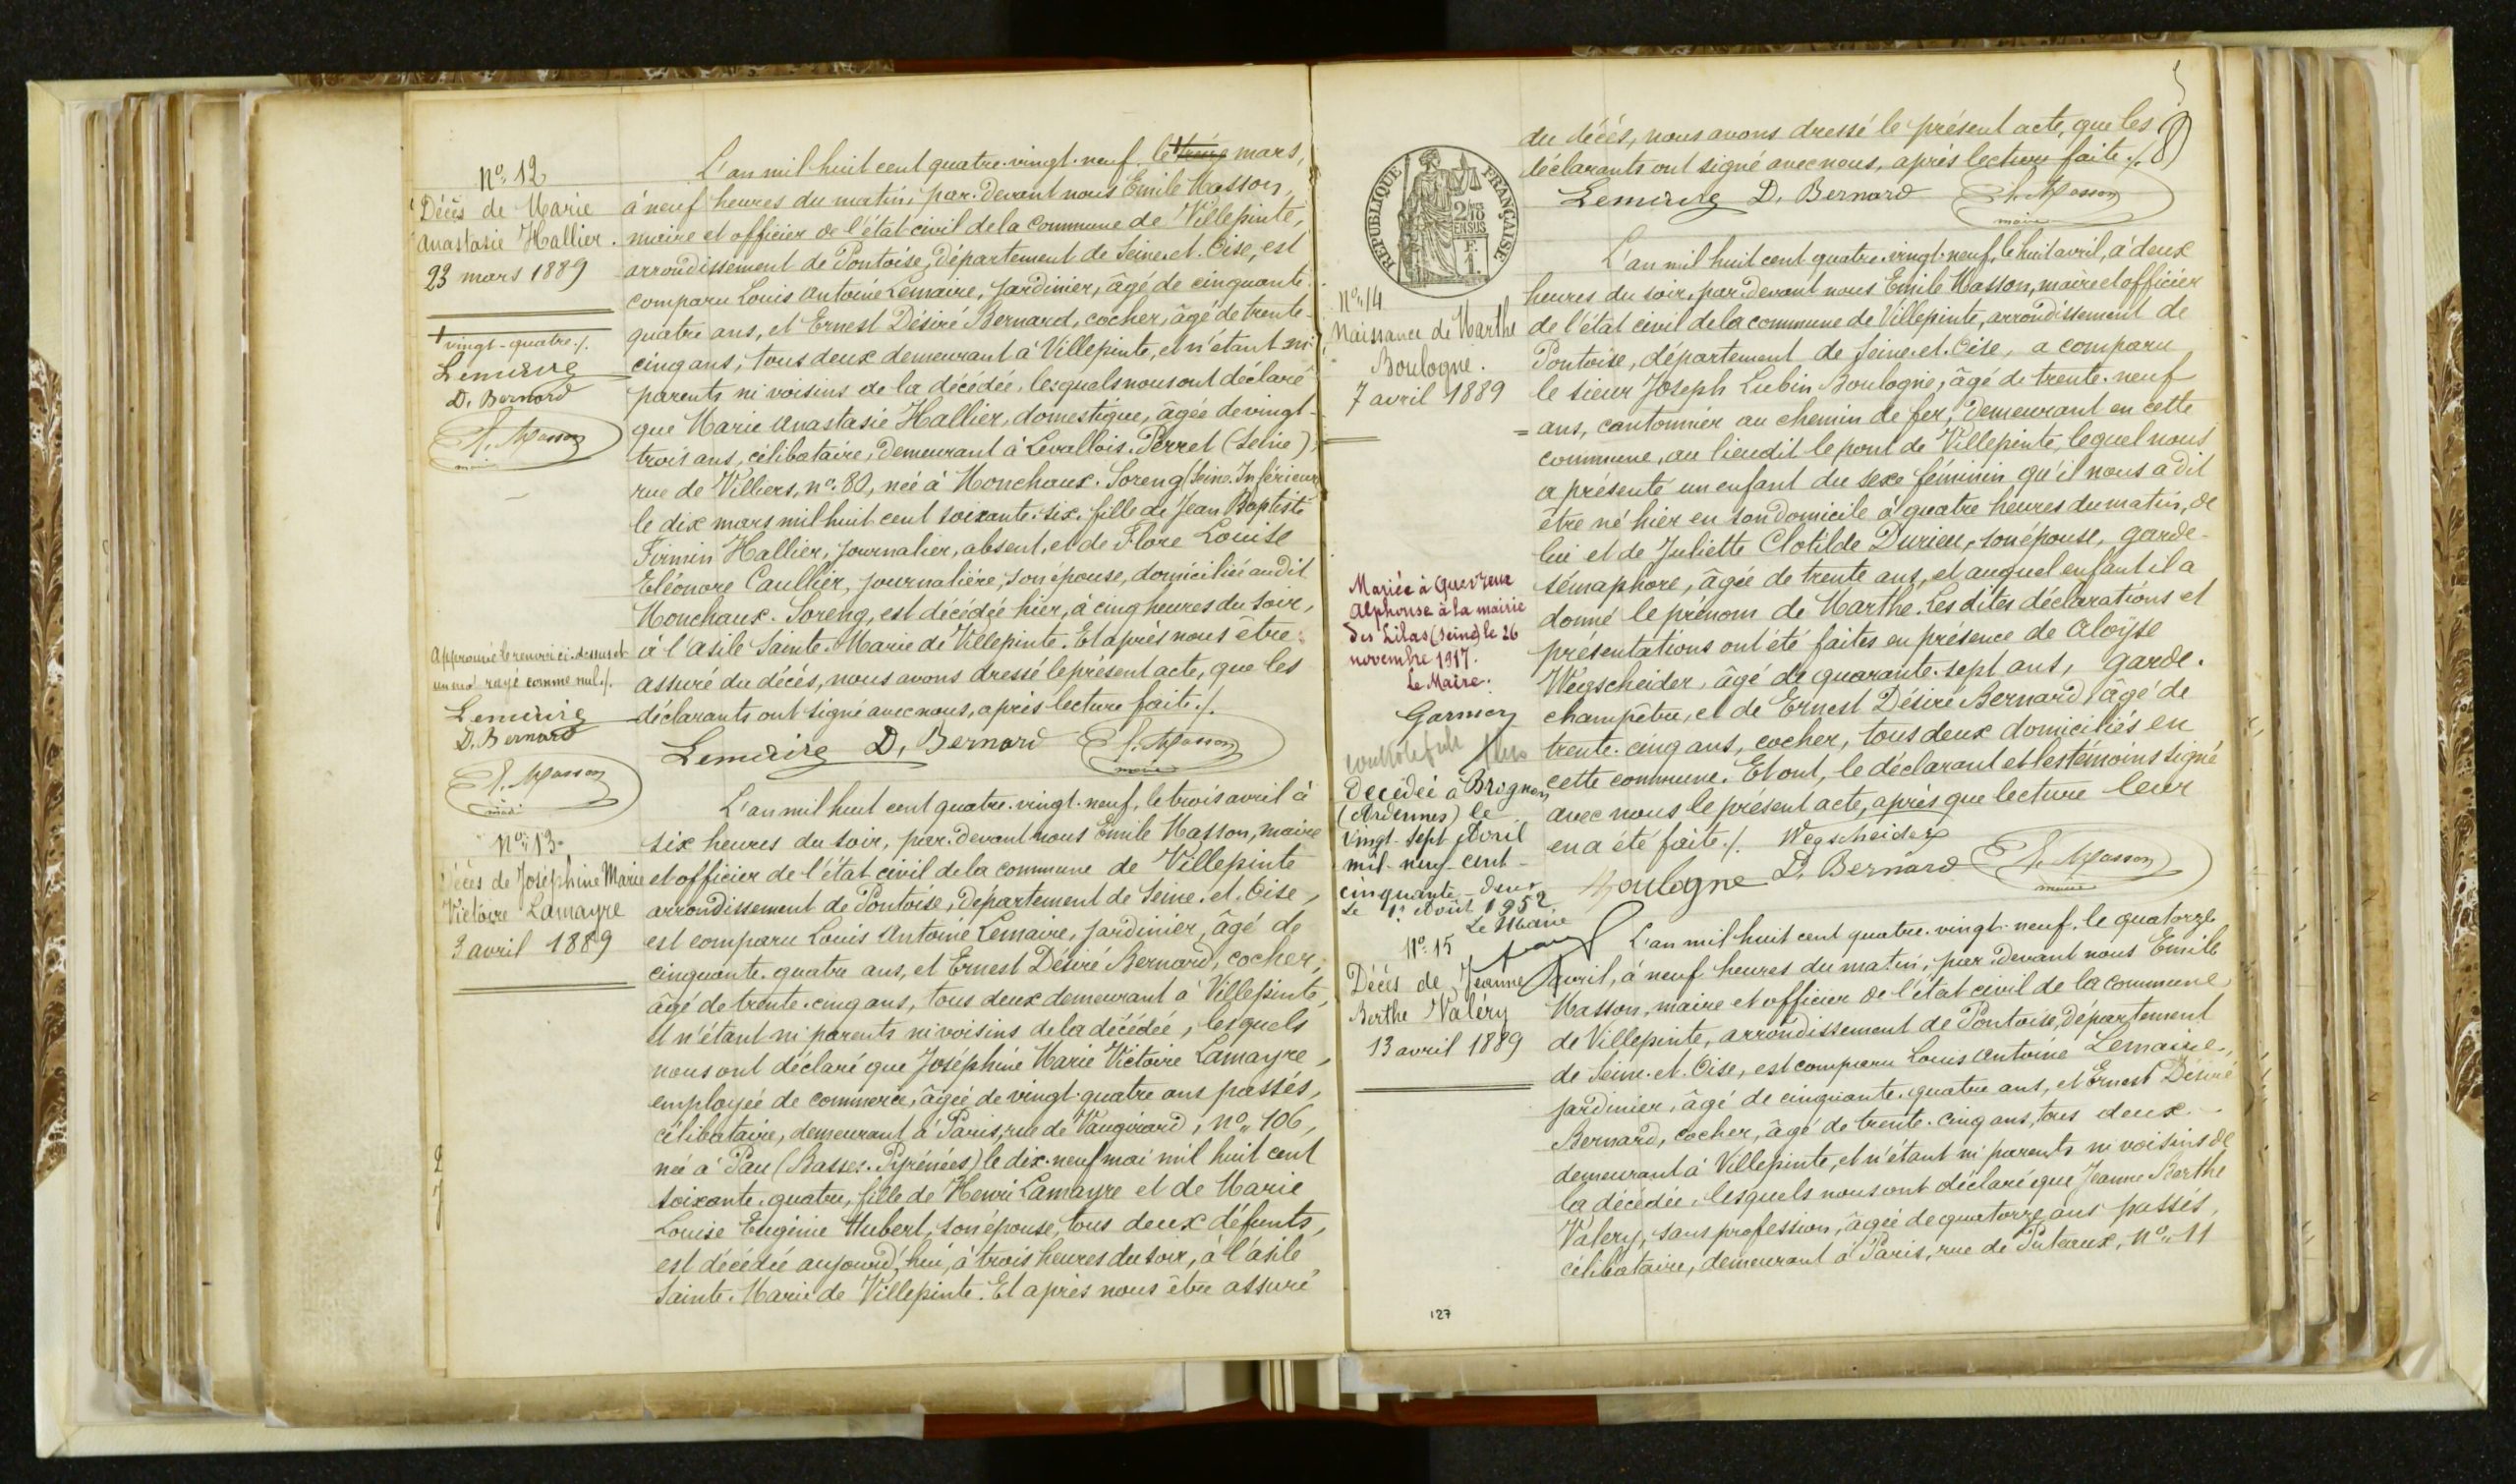 N° 12
Décès de Marie
Anastasie Hallier.
23 mars 1889
vingt-quatre ./.
Lemaire
D. Bernard
E. Masson
maire
Approuvé le renvoi ci-dessus et
un mot rayé comme nul ./.
Lemaire
D. Bernard
E. Masson
maire
L'an mil huit cent quatre-vingt-neuf, le mars,
à neuf heures du matin, par-devant nous Emile Masson,
maire et officier de l'état civil de la commune de Villepinte,
arrondissement de Pontoise, département de Seine-et-Oise, est
comparu Louis Antoine Lemaire, jardinier, âgé de cinquante-
quatre ans, et Ernest Désiré Bernard, cocher, âgé de trente-
cinq ans; tous deux demeurant à Villepinte, et n'étant ni
parents ni voisins de la décédée, lesquels nous ont déclaré
que Marie Anastasie Hallier, domestique, âgée de vingt-
trois ans, célibataire, demeurant à Levallois-Perret (Seine),
rue de Villiers, n° 80, née à Monchaux-Soreng (Seine-Inférieure)
le dix mars mil huit cent soixante-six, fille de Jean Baptiste
Firmin Hallier, journalier, absent, et de Flore Louise
Eléonore Caullier, journalière, son épouse, domiciliée audit
Monchaux-Soreng, est décédée hier, à cinq heures du soir,
à l'asile Sainte-Marie de Villepinte. Et après nous être
assuré du décès, nous avons dressé le présent acte, que les
déclarants ont signé avec nous, après lecture faite ./.
Lemaire D. Bernard E. Masson
maire
N° 13
Décès de Joséphine Marie
Victoire Lamayre
3 avril 1889
L'an mil huit cent quatre-vingt-neuf, le trois avril à
six heures du soir, par-devant nous Emile Masson, maire
et officier de l'état civil de la commune de Villepinte
arrondissement de Pontoise, département de Seine-et-Oise,
est comparu Louis Antoine Lemaire, jardinier, âgé de
cinquante-quatre ans, et Ernest Désiré Bernard, cocher,
âgé de trente-cinq ans, tous deux demeurant à Villepinte,
et n'étant ni parents ni voisins de la décédée, lesquels
nous ont déclaré que Joséphine Marie Victoire Lamayre,
employée de commerce, âgée de vingt-quatre ans passés,
célibataire, demeurant à Paris, rue de Vaugirard, n° 106,
née à Pau (Basses-Pyrénées) le dix-neuf mai mil huit cent
soixante-quatre, fille de Henri Lamayre et de Marie
Louise Eugénie Hubert, son épouse, tous deux défunts,
est décédée aujourd'hui, à trois heures du soir, à l'asile
Sainte-Marie de Villepinte. Et après nous être assuré
du décès, nous avons dressé le présent acte, que les
déclarants ont signé avec nous, après lecture faite ./.
Lemaire D. Bernard E. Masson
maire
RÉPUBLIQUE FRANÇAISE
2/10
EN SUS
F.
1.
N° 14
Naissance de Marthe
Boulogne.
7 avril 1889
L'an mil huit cent quatre-vingt-neuf, le huit avril, à deux
heures du soir, par-devant nous Emile Masson, maire et officier
de l'état civil de la commune de Villepinte, arrondissement de
Pontoise, département de Seine-et-Oise, a comparu
le sieur Joseph Lubin Boulogne, âgé de trente-neuf
= ans, cantonnier au chemin de fer, demeurant en cette
commune, au lieudit le pont de Villepinte, lequel nous
a présenté un enfant du sexe féminin qu'il nous a dit
être né hier en son domicile à quatre heures du matin, de
lui et de Juliette Clotilde Durieu, son épouse, garde-
sémaphore, âgée de trente ans, et auquel enfant il a
donné le prénom de Marthe. Les dites déclarations et
présentations ont été faites en présence de Aloÿse
Wegscheider, âgé de quarante-sept ans, garde-
champêtre, et de Ernest Désiré Bernard, âgé de
trente-cinq ans, cocher, tous deux domiciliés en
cette commune. Et ont, le déclarant et les témoins signé
avec nous le présent acte, après que lecture leur
en a été faite ./. Wegscheider
Boulogne D. Bernard E. Masson
maire
Mariée à Quevreux
Alphonse à la mairie
des Lilas (Seine) le 26
novembre 1917.
Le Maire.
Décédée à
(Ardennes) le
vingt-sept Avril
mil-neuf-cent-
cinquante-deux
Le 1er Août 1952
Le Maire
N° 15
Décès de Jeanne
Berthe Valéry
13 avril 1889
L'an mil huit cent quatre-vingt-neuf, le quatorze
avril, à neuf heures du matin, par-devant nous Emile
Masson, maire et officier de l'état civil de la commune
de Villepinte, arrondissement de Pontoise, département
de Seine-et-Oise, est comparu Louis Antoine Lemaire,
jardinier, âgé de cinquante-quatre ans, et Ernest Désiré
Bernard, cocher, âgé de trente-cinq ans, tous deux
demeurant à Villepinte, et n'étant ni parents ni voisins de
la décédée, lesquels nous ont déclaré que Jeanne Berthe
Valery, sans profession, âgée de quatorze ans passés,
célibataire, demeurant à Paris, rue de Puteaux, n° 11
127